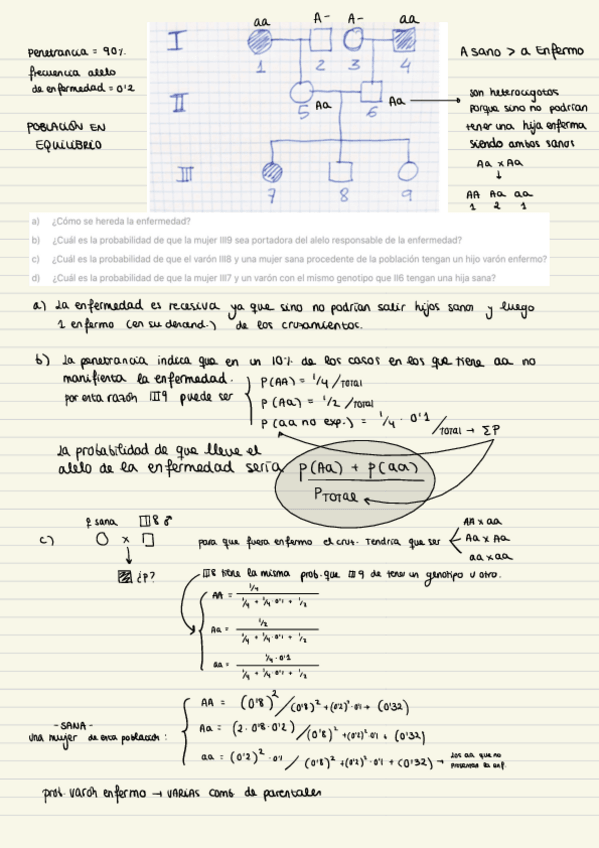 aa A- A- aa
I
1 2 3 4
Penetrancia = 90%
frecuencia alelo
de enfermedad = 0'2
POBLACIÓN EN
EQUILIBRIO
A sano > a Enfermo
II
5 Aa 6 Aa
son heterocigotos
porque sino no podrían
tener una hija enferma
siendo ambos sanos
Aa x Aa
AA Aa aa
1 2 1
III
7 8 9
a) ¿Cómo se hereda la enfermedad?
b) ¿Cuál es la probabilidad de que la mujer III9 sea portadora del alelo responsable de la enfermedad?
c) ¿Cuál es la probabilidad de que el varón III8 y una mujer sana procedente de la población tengan un hijo varón enfermo?
d) ¿Cuál es la probabilidad de que la mujer III7 y un varón con el mismo genotipo que II6 tengan una hija sana?
a) La enfermedad es recesiva ya que sino no podrían salir hijos sanos y luego
1 enfermo (en su descend.) de los cruzamientos.
b) La penetrancia indica que en un 10% de los casos en los que tiene aa no
manifiesta la enfermedad.
por esta razón III9 puede ser
P(AA) = 1/4 /TOTAL
P(Aa) = 1/2 /TOTAL
P(aa no exp.) = 1/4 · 0'1 /TOTAL → ΣP
La probabilidad de que lleve el
alelo de la enfermedad sería
P(Aa) + P(aa)
PTOTAL
c) ♀ sana III8 ♂
x
¿P?
para que fuera enfermo el cruz. tendría que ser
AA x aa
Aa x Aa
aa x aa
III8 tiene la misma prob. que III9 de tener un genotipo u otro.
AA = 1/4
1/4 + 1/4·0'1 + 1/2
Aa = 1/2
1/4 + 1/4·0'1 + 1/2
aa = 1/4·0'1
1/4 + 1/4·0'1 + 1/2
-SANA-
Una mujer de esta población:
AA = (0'8)² / (0'8)² + (0'2)²·0'1 + (0'32)
Aa = (2·0'8·0'2) / (0'8)² + (0'2)²·0'1 + (0'32)
aa = (0'2)²·0'1 / (0'8)² + (0'2)²·0'1 + (0'32) → Los aa que no
presentan la enf.
prob. varón enfermo → VARIAS comb. de parentales